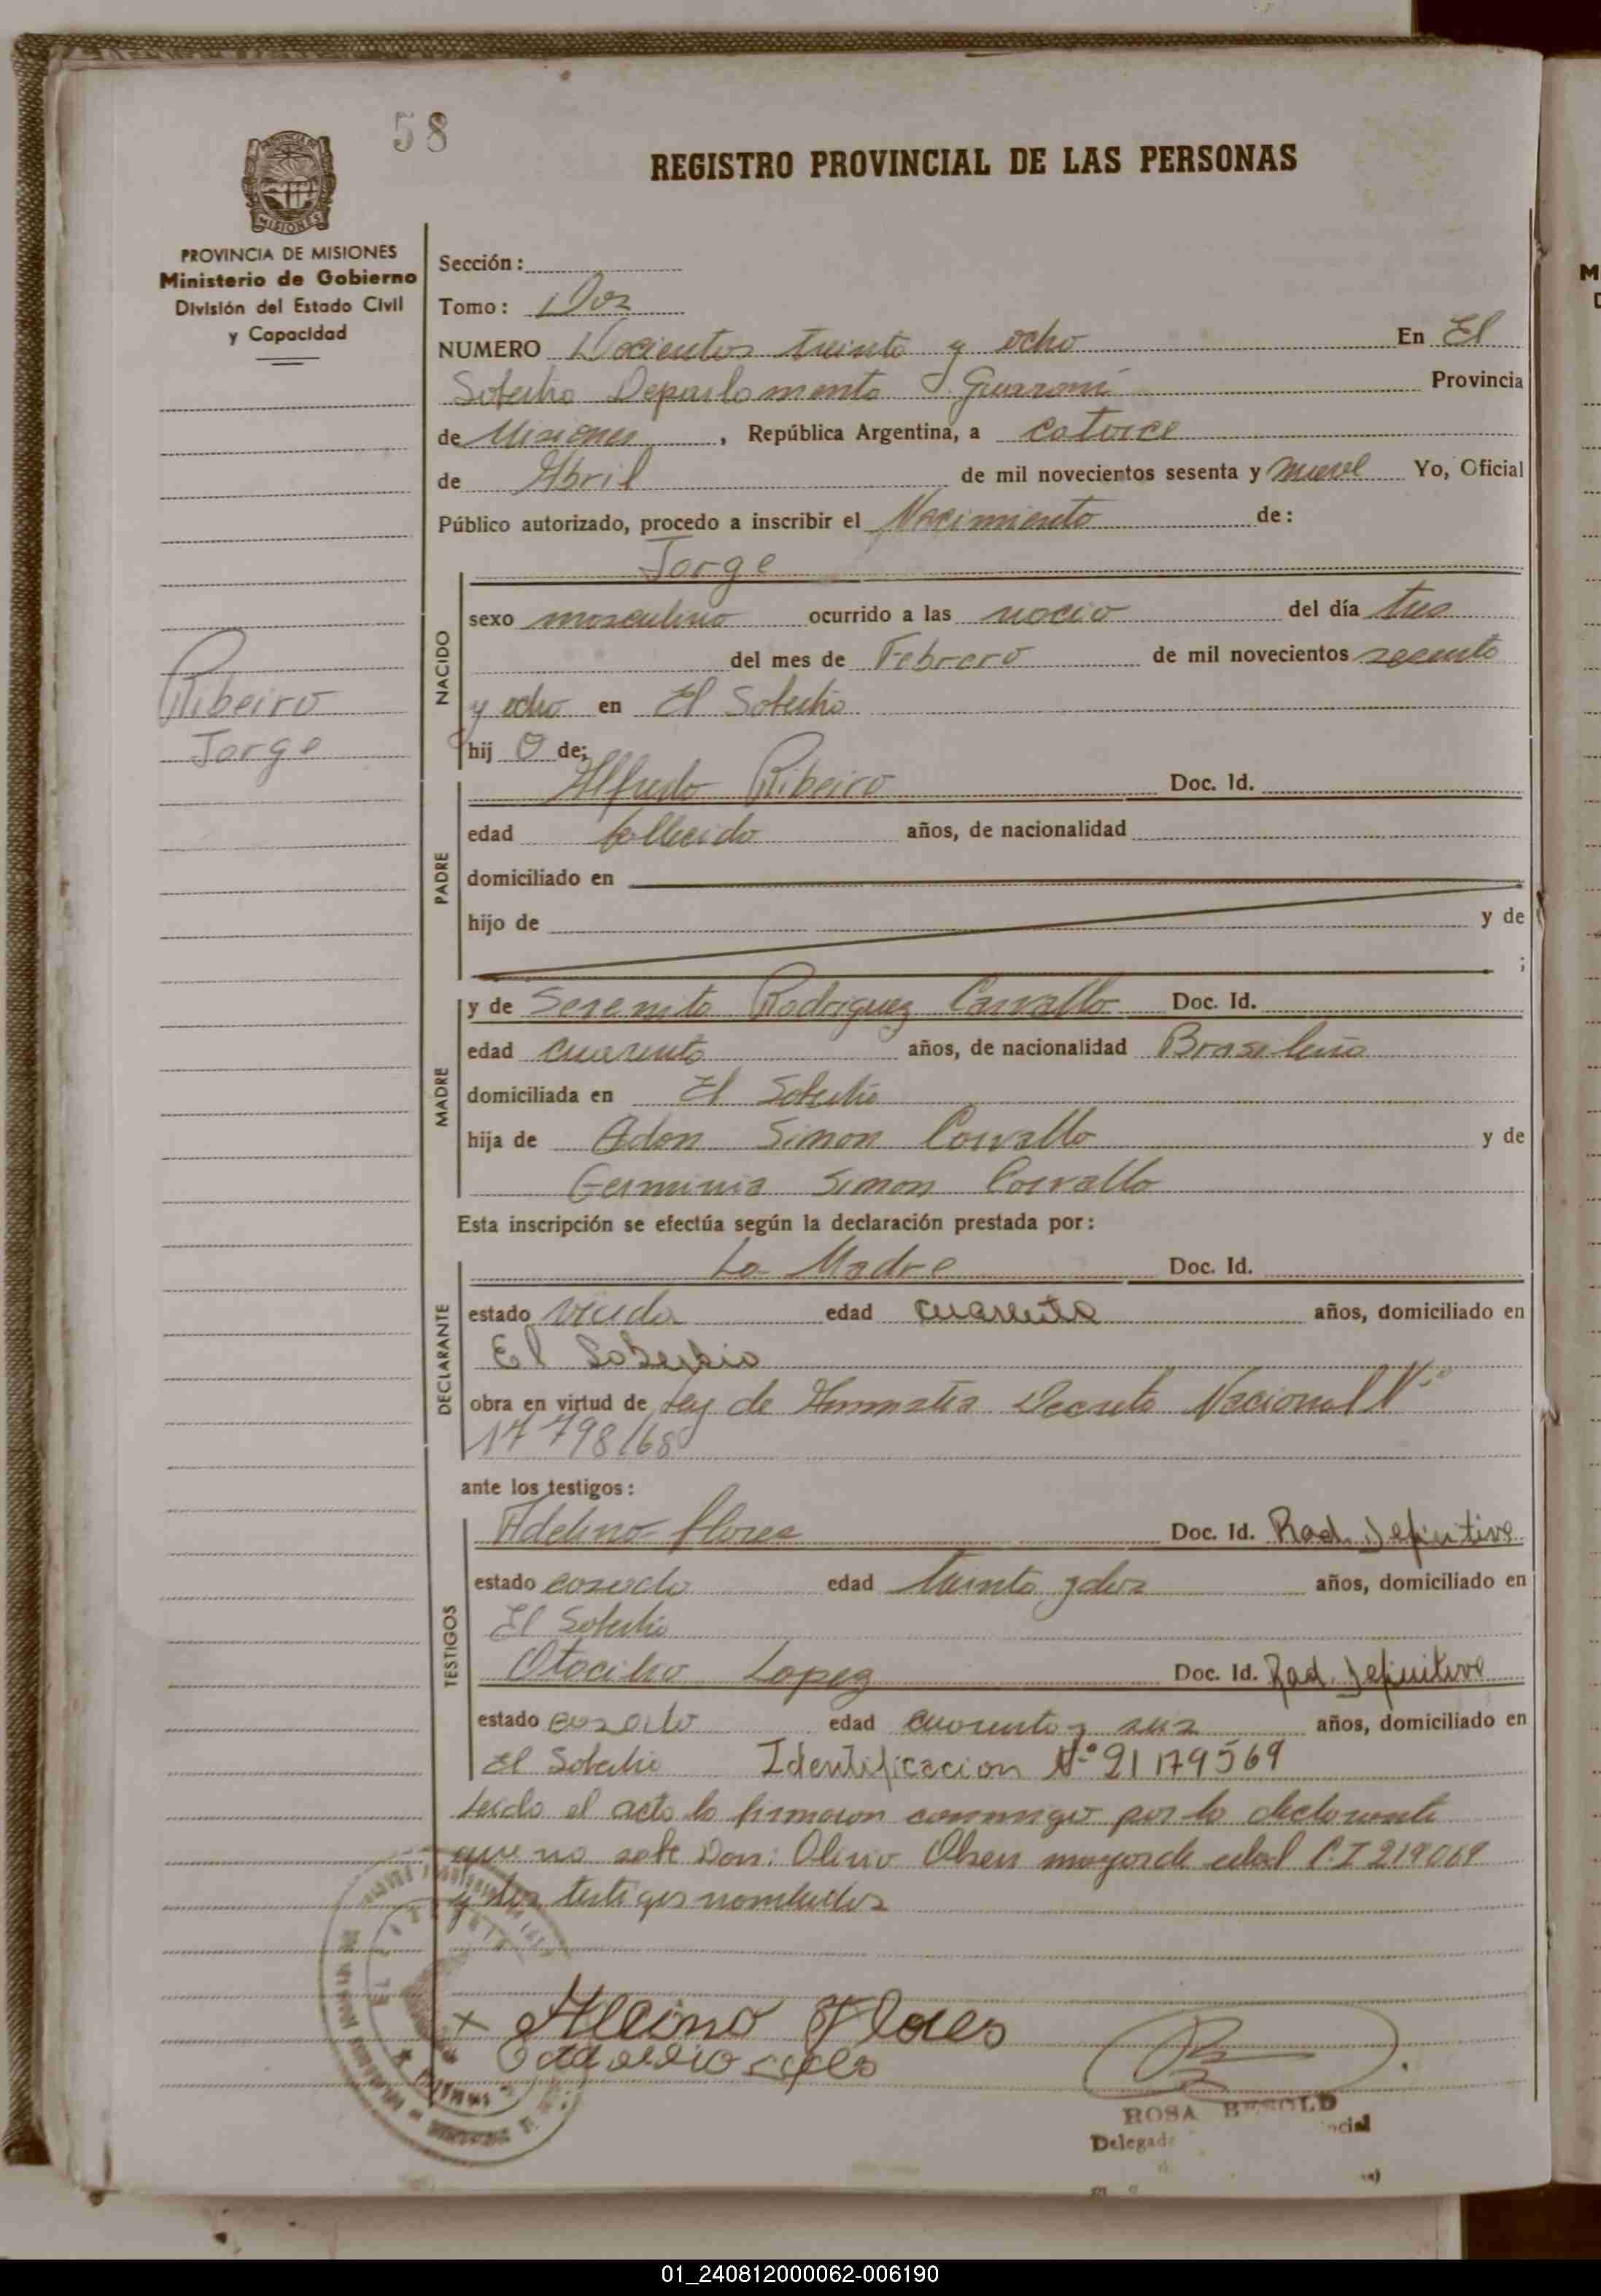 58
REGISTRO PROVINCIAL DE LAS PERSONAS
PROVINCIA DE MISIONES
Ministerio de Gobierno
División del Estado Civil
y Capacidad
Sección:
Tomo: Dos
NUMERO Docientos treinta y ocho En El
Soberbio Departamento Guarani Provincia
de Misiones, República Argentina, a catorce
de Abril de mil novecientos sesenta y nueve Yo, Oficial
Público autorizado, procedo a inscribir el Nacimiento de:
Jorge
NACIDO
sexo masculino ocurrido a las del día tres
del mes de Febrero de mil novecientos sesenta
y ocho en El Soberbio
Ribeiro
Jorge
hij o de;
PADRE
Alfredo Ribeiro Doc. Id.
edad fallecido años, de nacionalidad
domiciliado en
hijo de y de
;
MADRE
y de Serenita Rodriguez Carvallo Doc. Id.
edad cuarenta años, de nacionalidad Brasileña
domiciliada en El Soberbio
hija de Adon Simon Corvallo y de
Germinia Simon Corvallo
Esta inscripción se efectúa según la declaración prestada por:
DECLARANTE
La Madre Doc. Id.
estado viuda edad cuarenta años, domiciliado en
El Soberbio
obra en virtud de Ley de Amnistia Decreto Nacional Nº
17 798/68
ante los testigos:
TESTIGOS
Adelino Flores Doc. Id. Rad. Definitiva
estado casado edad treinta y dos años, domiciliado en
El Soberbio
Otacilio Lopez Doc. Id. Rad. Definitiva
estado casado edad cuarenta y seis años, domiciliado en
El Soberbio Identificacion Nº 21179569
Leida el acta la firmaron conmigo por la declarante
que no sabe Don: Olivio Olsen mayor de edad C.I 219069
y los testigos nombrados
x Flores
ROSA BESOLD
01_240812000062-006190